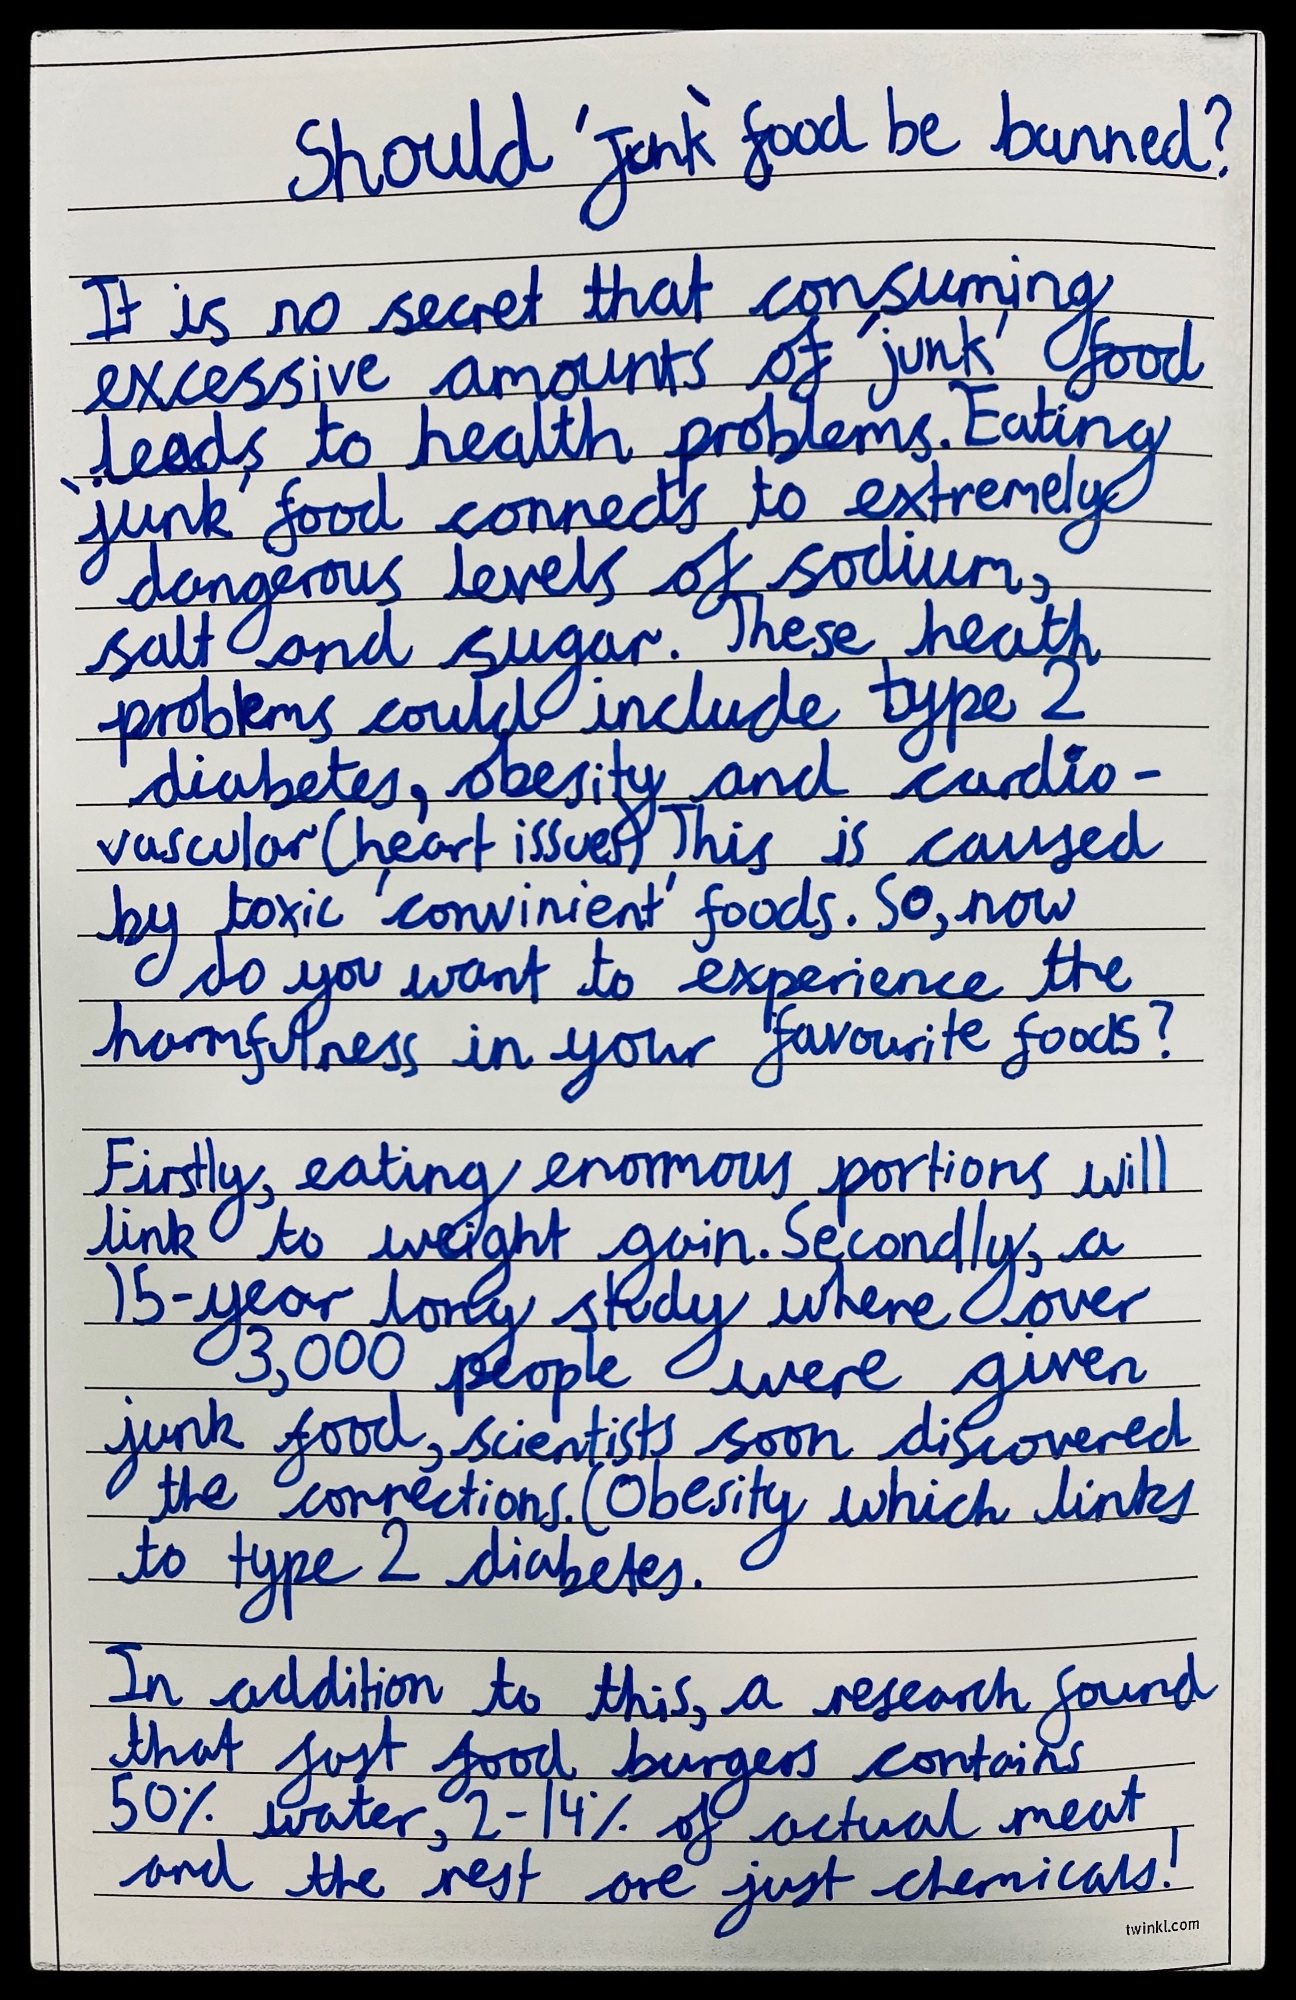 Should 'junk' food be banned?
It is no secret that consuming
excessive amounts of 'junk' food
leads to health problems. Eating
'junk' food connects to extremely
dangerous levels of sodium,
salt and sugar. These heath
problems could include type 2
diabetes, obesity and cardio-
vascular (heart issues) This is caused
by toxic 'convinient' foods. So, now
do you want to experience the
harmfulness in your favourite foods?
Firstly, eating enormous portions will
link to weight gain. Secondly, a
15-year long study where over
3,000 people were given
junk food, scientists soon discovered
the connections. (Obesity which links
to type 2 diabetes.
In addition to this, a research found
that fast food burgers contains
50% water, 2-14% of actual meat
and the rest are just chemicals!
twinkl.com